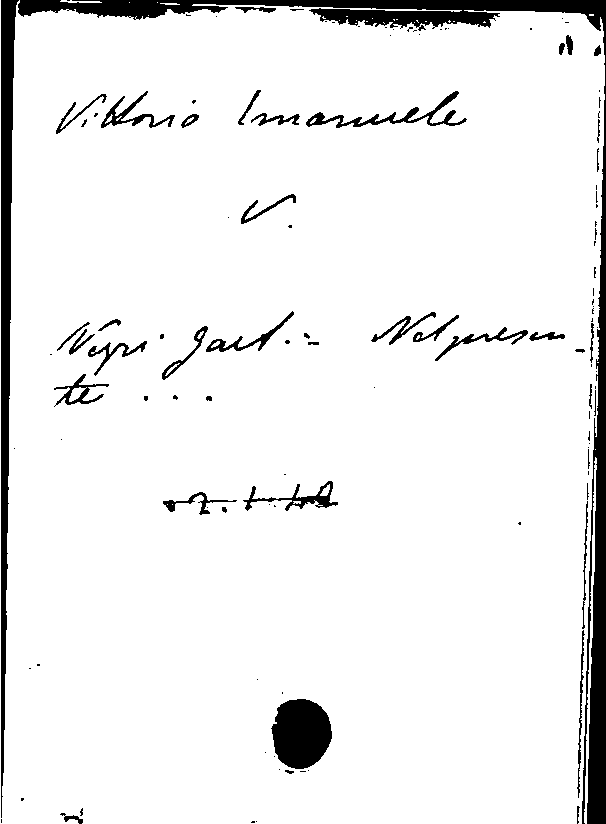 Vittorio Emanuele
V.
Negri Gaet. - Nel presen-
te . . .